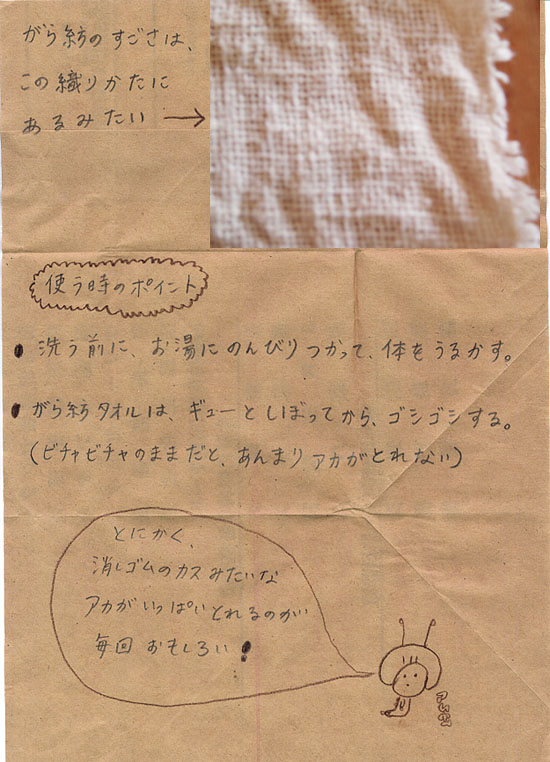 がら紡のすごさは、
この織りかたに
あるみたい →
使う時のポイント
● 洗う前に、お湯にのんびりつかって、体をうるかす。
● がら紡タオルは、ギューとしぼってから、ゴシゴシする。
(ビチャビチャのままだと、あんまりアカがとれない)
とにかく、
消しゴムのカスみたいな
アカがいっぱいとれるのが
毎回おもしろい!